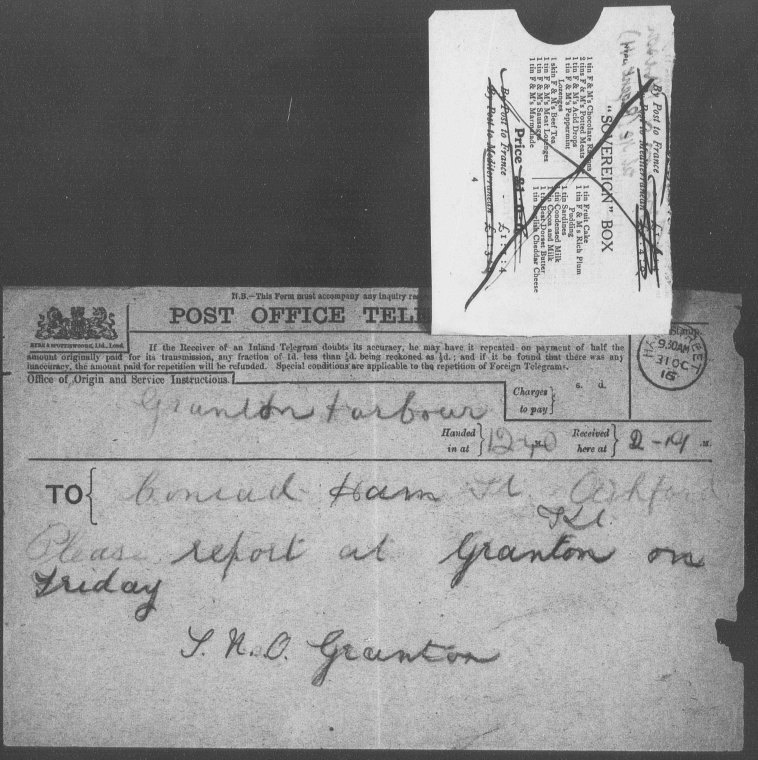 By Post to France
By Post to Mediterranean
"SOVEREIGN" BOX
1 tin F & M's Chocolate
2 tins F & M's Potted Meats
1 tin F & M's Acid Drops
1 tin F & M's Peppermint
Lozenges
1 skin F & M's Beef Tea
1 tin F & M's Meat Lozenges
1 tin F & M's Sausages
1 tin F & M's Marmalade
1 tin Fruit Cake
1 tin F & M's Rich Plum
Pudding
1 tin Sardines
1 tin Condensed Milk
1 tin Cocoa and Milk
1 tin Best Dorset Butter
1 tin English Cheddar Cheese
Price
By Post to France - £1 : 4
By Post to Mediterranean £1
4
N.B.—This Form must accompany any inquiry
POST OFFICE
If the Receiver of an Inland Telegram doubts its accuracy, he may have it repeated on payment of half the
amount originally paid for its transmission, any fraction of 1d. less than ½d. being reckoned as ½d.; and if it be found that there was any
inaccuracy, the amount paid for repetition will be refunded. Special conditions are applicable to the repetition of Foreign Telegrams.
Office of Origin and Service Instructions.
Stamp
9.30AM
31 OC
16
Charges
to pay
s. d.
Granton Harbour
Handed
in at
12-40
M.
Received
here at
2-19
M.
TO
Conrad Ham St. Ashford
Kt.
Please report at Granton on
Friday
S.N.O. Granton